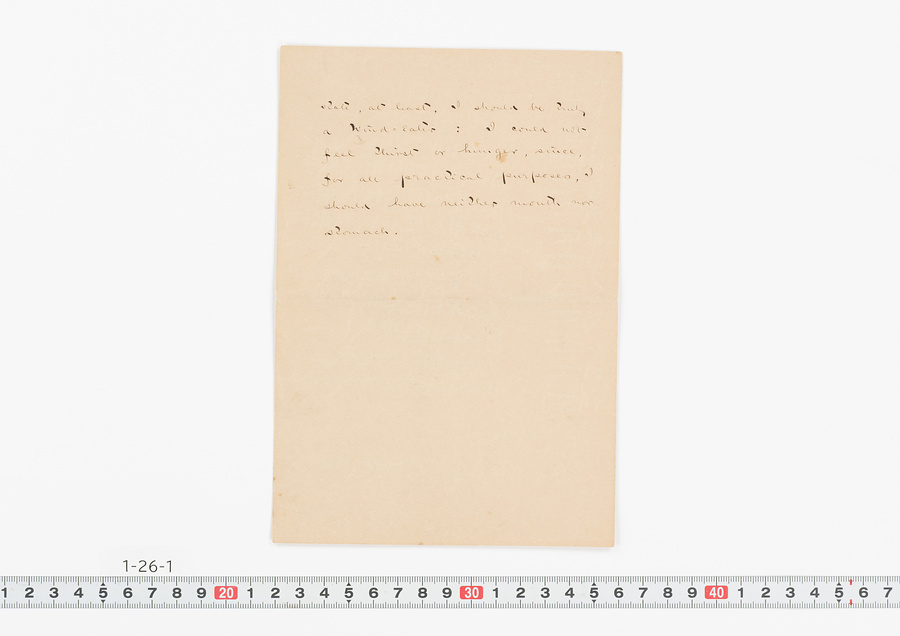 state, at least, I should be truly
a Wind-eater : I could not
feel thirst or hunger, since,
for all practical purposes, I
should have neither mouth nor
stomach.
1-26-1
1 2 3 4 5 6 7 8 9 20 1 2 3 4 5 6 7 8 9 30 1 2 3 4 5 6 7 8 9 40 1 2 3 4 5 6 7